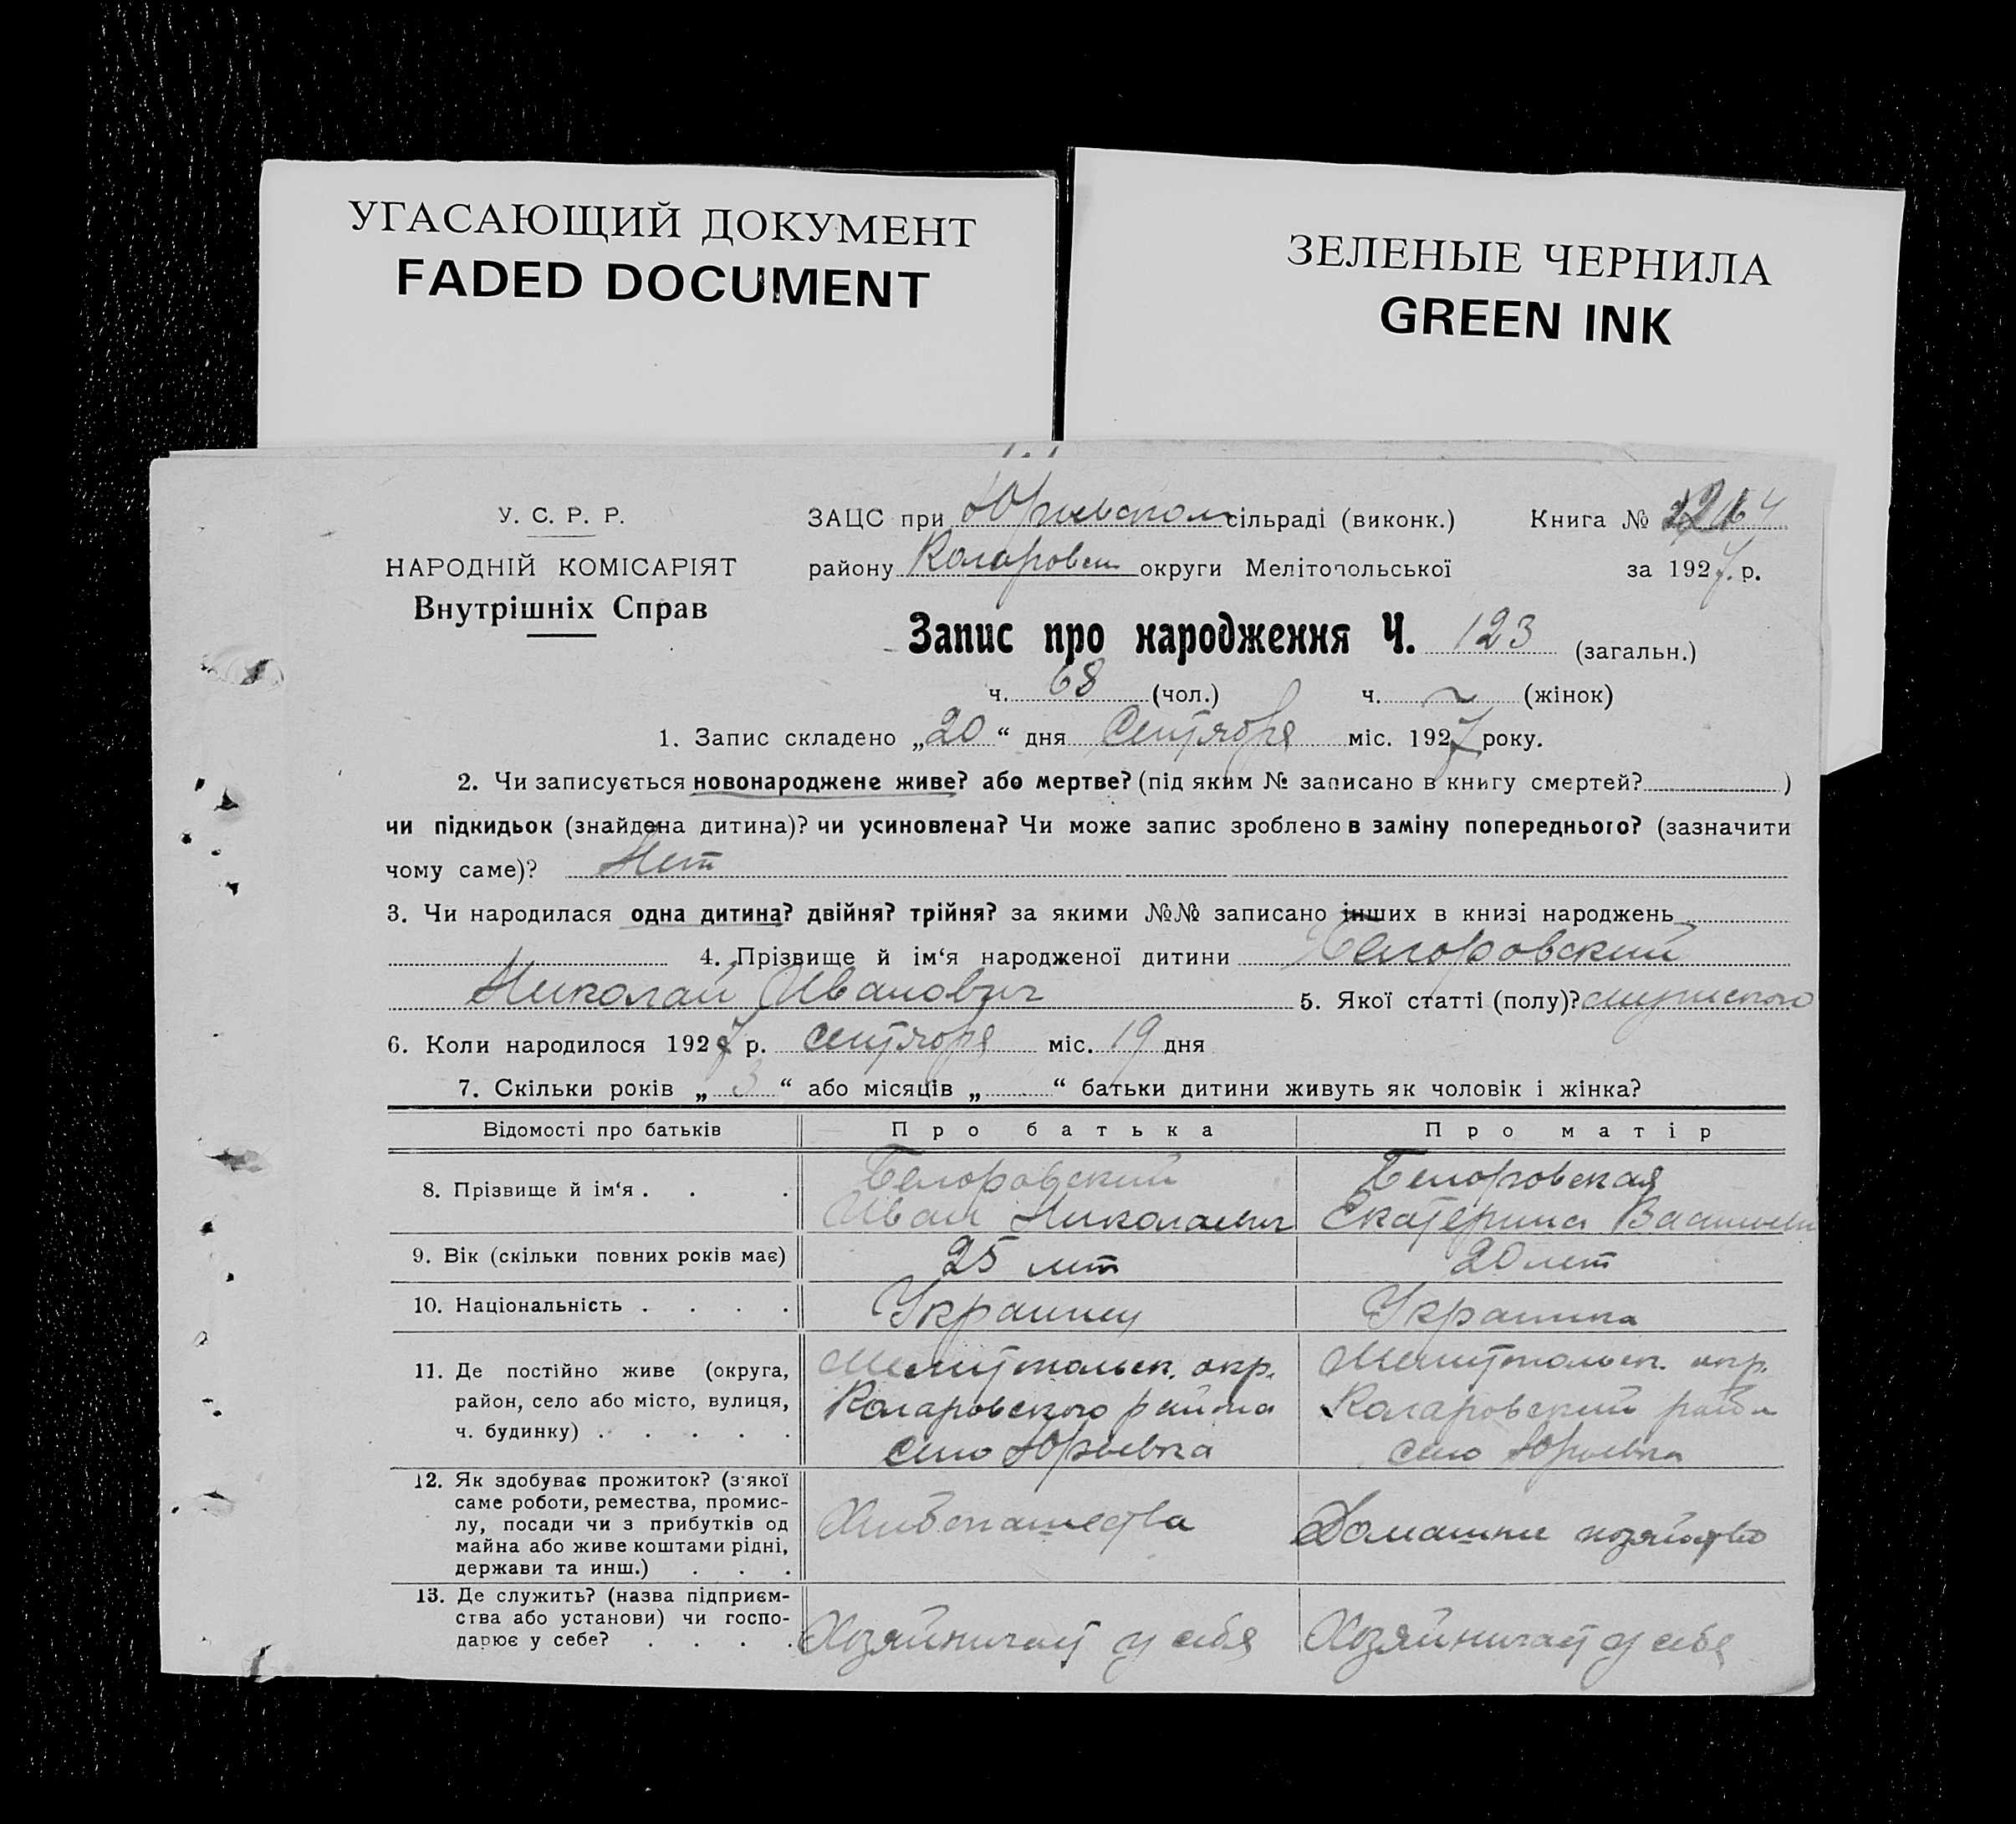 УГАСАЮЩИЙ ДОКУМЕНТ
FADED DOCUMENT
ЗЕЛЕНЫЕ ЧЕРНИЛА
GREEN INK
У. С. Р. Р.
НАРОДНІЙ КОМІСАРІЯТ
Внутрішніх Справ
ЗАЦС при Юрьевском сільраді (виконк.) Книга №
району Коларовск округи Мелітопольської за 1927 р.
Запис про народження Ч. 123 (загальн.)
ч. 68 (чол.) ч. ~ (жінок)
1. Запис складено „20“ дня Сентября міс. 1927 року.
2. Чи записується новонароджене живе? або мертве? (під яким № записано в книгу смертей? )
чи підкидьок (знайдена дитина)? чи усиновлена? Чи може запис зроблено в заміну попереднього? (зазначити
чому саме)? Нет
3. Чи народилася одна дитина? двійня? трійня? за якими №№ записано інших в книзі народжень
4. Прізвище й ім‘я народженої дитини
Николай Иванович 5. Якої статті (полу)? мужского
6. Коли народилося 1927 р. сентября міс. 19 дня
7. Скільки років „ 3 “ або місяців „ “ батьки дитини живуть як чоловік і жінка?
Відомості про батьків Про батька Про матір
8. Прізвище й ім‘я . . .
Иван Николаевич Екатерина
9. Вік (скільки повних років має) 25 лет 20 лет
10. Національність . . . . Украинец Украинка
11. Де постійно живе (округа, Мелитопольск. окр. Мелитопольск. окр.
район, село або місто, вулиця, Коларовского района Коларовский район
ч. будинку) . . . . . село Юрьевка село Юрьевка
12. Як здобуває прожиток? (з'якої
саме роботи, ремества, промис-
лу, посади чи з прибутків од Хлебопашества Домашне хозяйство
майна або живе коштами рідні,
держави та инш.) . . .
13. Де служить? (назва підприєм-
ства або установи) чи госпо-
дарює у себе? . . . . Хозяйничает у себя Хозяйничает у себя